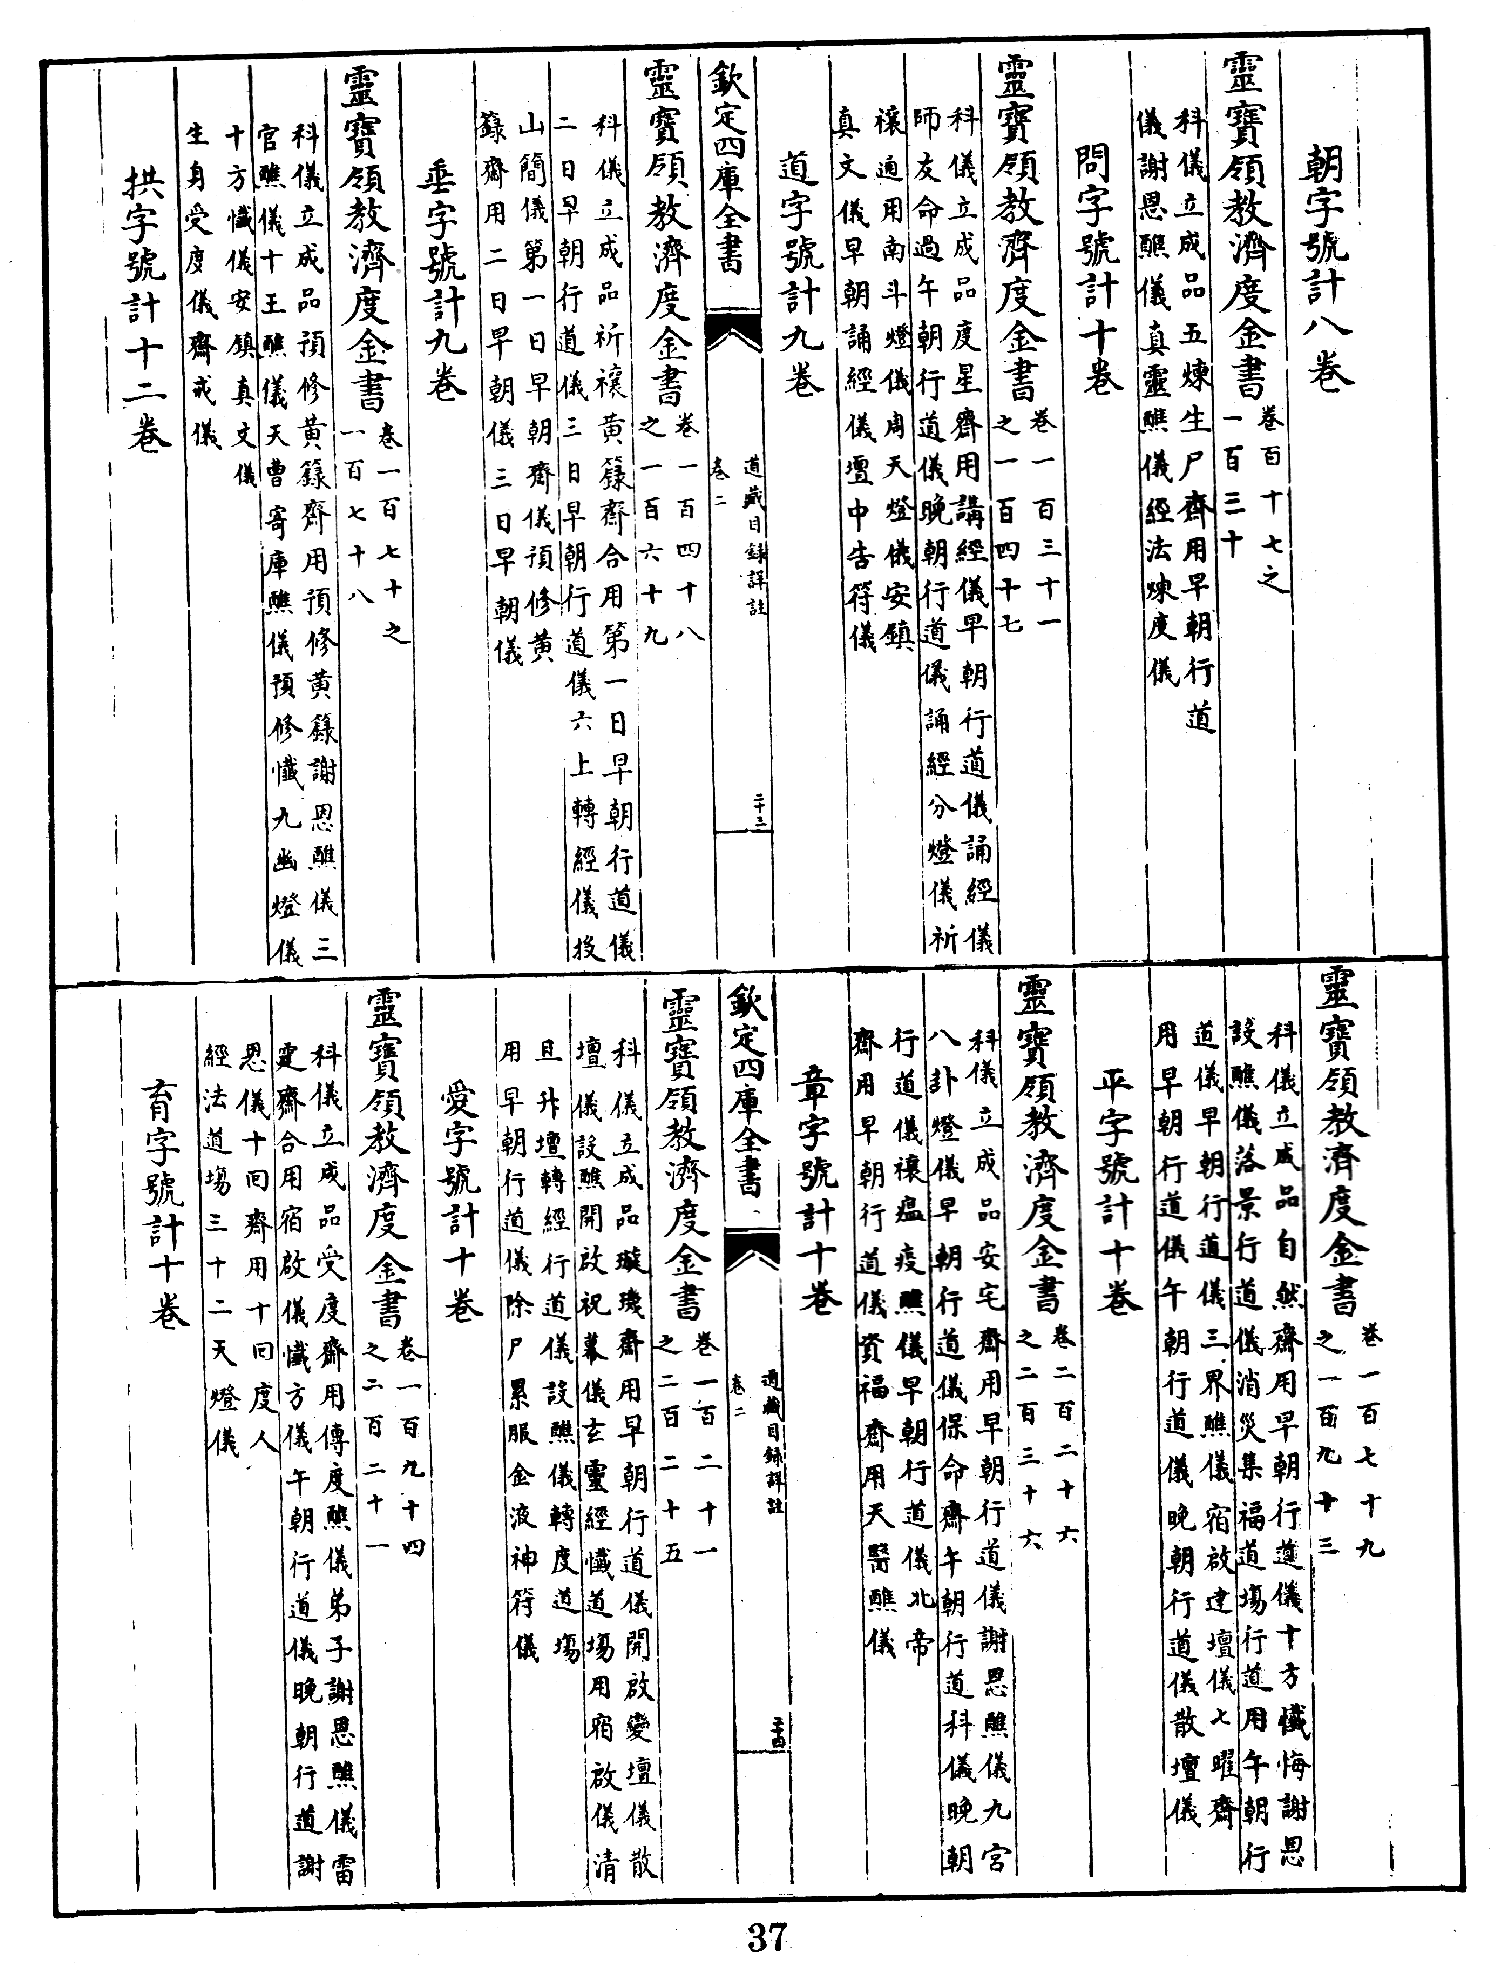 朝字號計八卷
靈寶領教濟度金書
卷百十七之
一百三十
科儀立成品五煉生尸齋用早朝行道
儀謝恩醮儀真靈醮儀經法煉度儀
問字號計十卷
靈寶領教濟度金書
卷一百三十一
之一百四十七
科儀立成品度星齋用講經儀早朝行道儀誦經儀
師友命過午朝行道儀晚朝行道儀誦經分燈儀祈
禳通用南斗燈儀周天燈儀安鎮
真文儀早朝誦經儀壇中告符儀
道字號計九卷
欽定四庫全書
道藏目録詳註
卷二
二十三
靈寶領教濟度金書
卷一百四十八
之一百六十九
科儀立成品祈禳黄籙齋合用第一日早朝行道儀
二日早朝行道儀三日早朝行道儀六上轉經儀投
山簡儀第一日早朝齋儀預修黄
籙齋用二日早朝儀三日早朝儀
垂字號計九卷
靈寶領教濟度金書
卷一百七十之
一百七十八
科儀立成品預修黄籙齋用預修黄籙謝恩醮儀三
官醮儀十王醮儀天曹寄庫醮儀預修懺九幽燈儀
十方懺儀安鎮真文儀
生身受度儀齋戒儀
拱字號計十二卷
靈寶領教濟度金書
卷一百七十九
之一百九十三
科儀立成品自然齋用早朝行道儀十方懺悔謝恩
設醮儀落景行道儀消災集福道場行道用午朝行
道儀早朝行道儀三界醮儀宿啟建壇儀七曜齋
用早朝行道儀午朝行道儀晚朝行道儀散壇儀
平字號計十卷
靈寶領教濟度金書
卷二百二十六
之二百三十六
科儀立成品安宅齋用早朝行道儀謝恩醮儀九宮
八卦燈儀早朝行道儀保命齋午朝行道科儀晚朝
行道儀禳瘟疫醮儀早朝行道儀北帝
齋用早朝行道儀資福齋用天醫醮儀
章字號計十卷
欽定四庫全書
道藏目録詳註
卷二
二十四
靈寶領教濟度金書
卷一百二十一
之二百二十五
科儀立成品璇璣齋用早朝行道儀開啟變壇儀散
壇儀設醮開啟祝幕儀玄靈經懺道場用宿啟儀清
旦升壇轉經行道儀設醮儀轉度道場
用早朝行道儀除尸累服金液神符儀
愛字號計十卷
靈寶領教濟度金書
卷一百九十四
之二百二十一
科儀立成品受度齋用傳度醮儀弟子謝恩醮儀雷
霆齋合用宿啟儀懺方儀午朝行道儀晚朝行道謝
恩儀十回齋用十回度人
經法道場三十二天燈儀
育字號計十卷
37